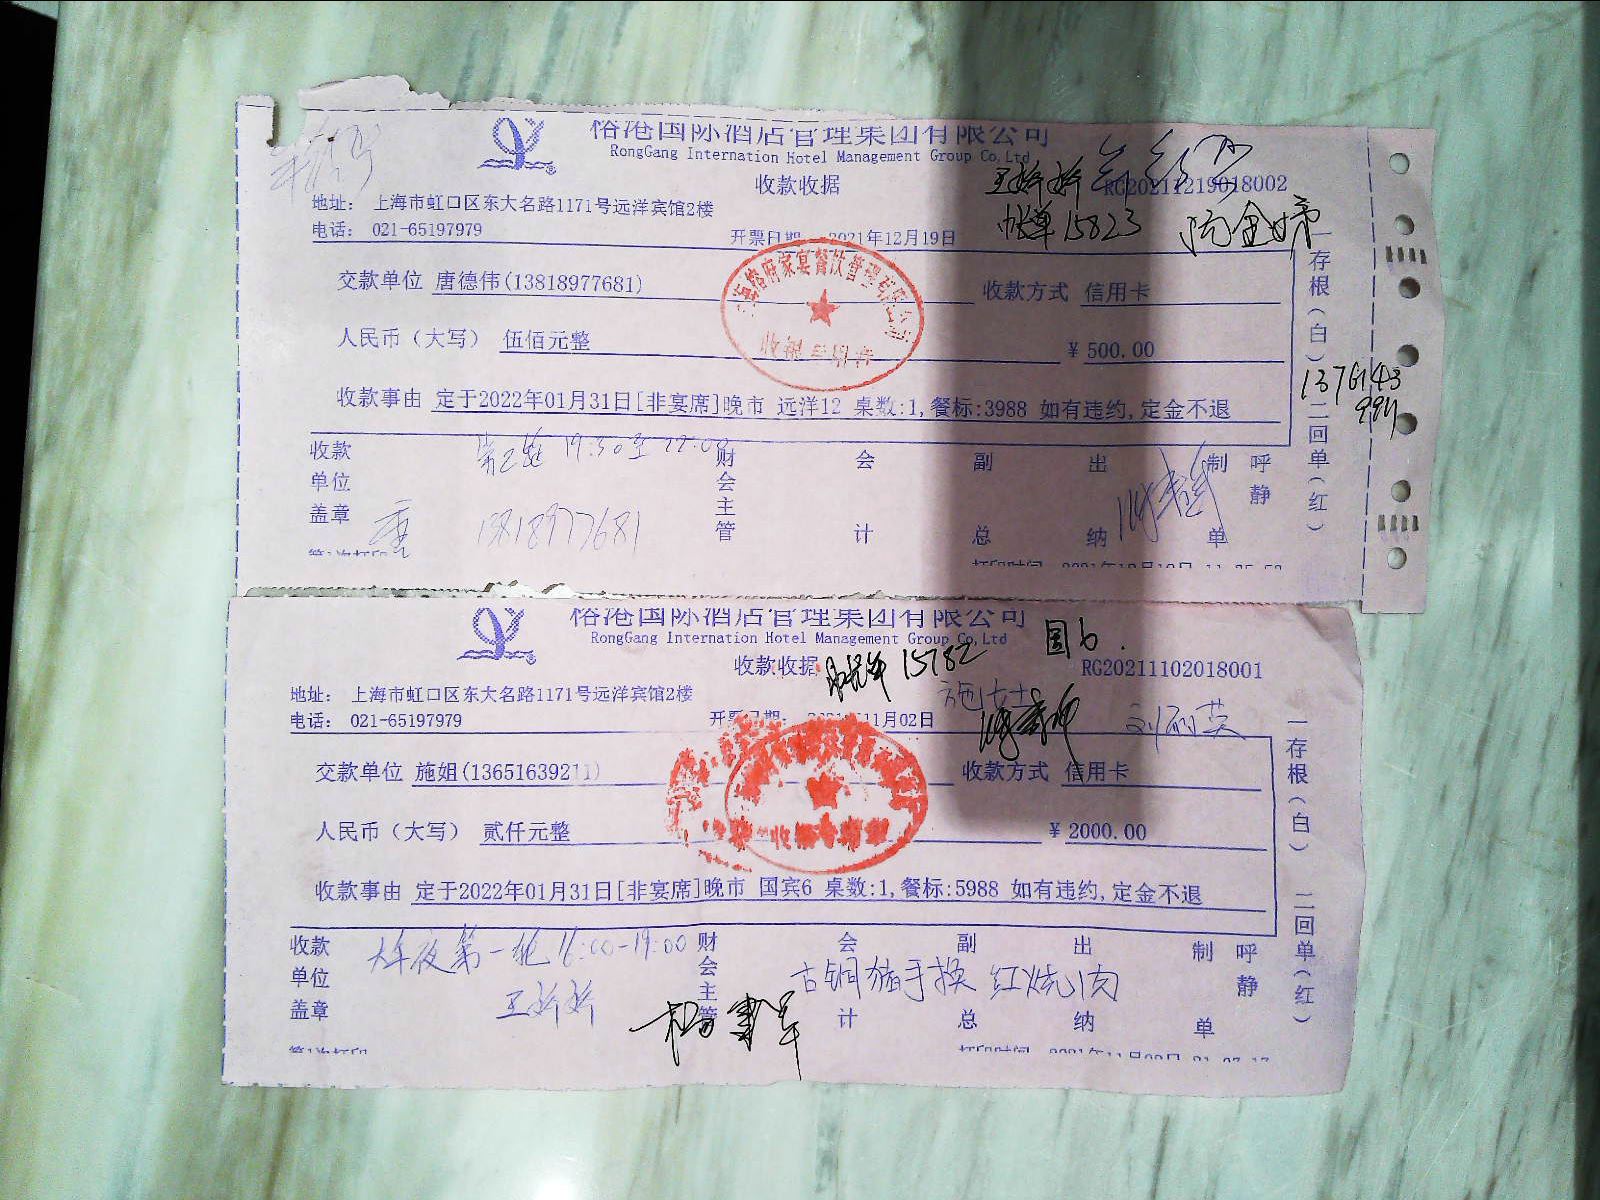 榕港国际酒店管理集团有限公司
RongGang Internation Hotel Management Group Co,Ltd
收款收据
RG20211219018002
王娇娇
帐单15823
地址： 上海市虹口区东大名路1171号远洋宾馆2楼
电话： 021-65197979
开票日期 2021年12月19日
交款单位 唐德伟(13818977681)
收款方式 信用卡
人民币（大写） 伍佰元整
￥500.00
收款事由 定于2022年01月31日[非宴席]晚市 远洋12 桌数:1,餐标:3988 如有违约,定金不退
一存根(白) 二回单(红)
收银专用章
19:30至22:00
13818977681
收款单位盖章
财会主管
会计
副总
出纳
制单
呼静
榕港国际酒店管理集团有限公司
RongGang Internation Hotel Management Group Co,Ltd
收款收据
15782
国6
RG20211102018001
地址： 上海市虹口区东大名路1171号远洋宾馆2楼
电话： 021-65197979
施女士
开票日期： 2021年11月02日
刘丽英
交款单位 施姐(13651639211)
收款方式 信用卡
人民币（大写） 贰仟元整
￥2000.00
收款事由 定于2022年01月31日[非宴席]晚市 国宾6 桌数:1,餐标:5988 如有违约,定金不退
一存根(白) 二回单(红)
大年夜第一轮 16:00-19:00
王娇娇
古铜猪手换 红烧肉
收款单位盖章
财会主管
会计
副总
出纳
制单
呼静